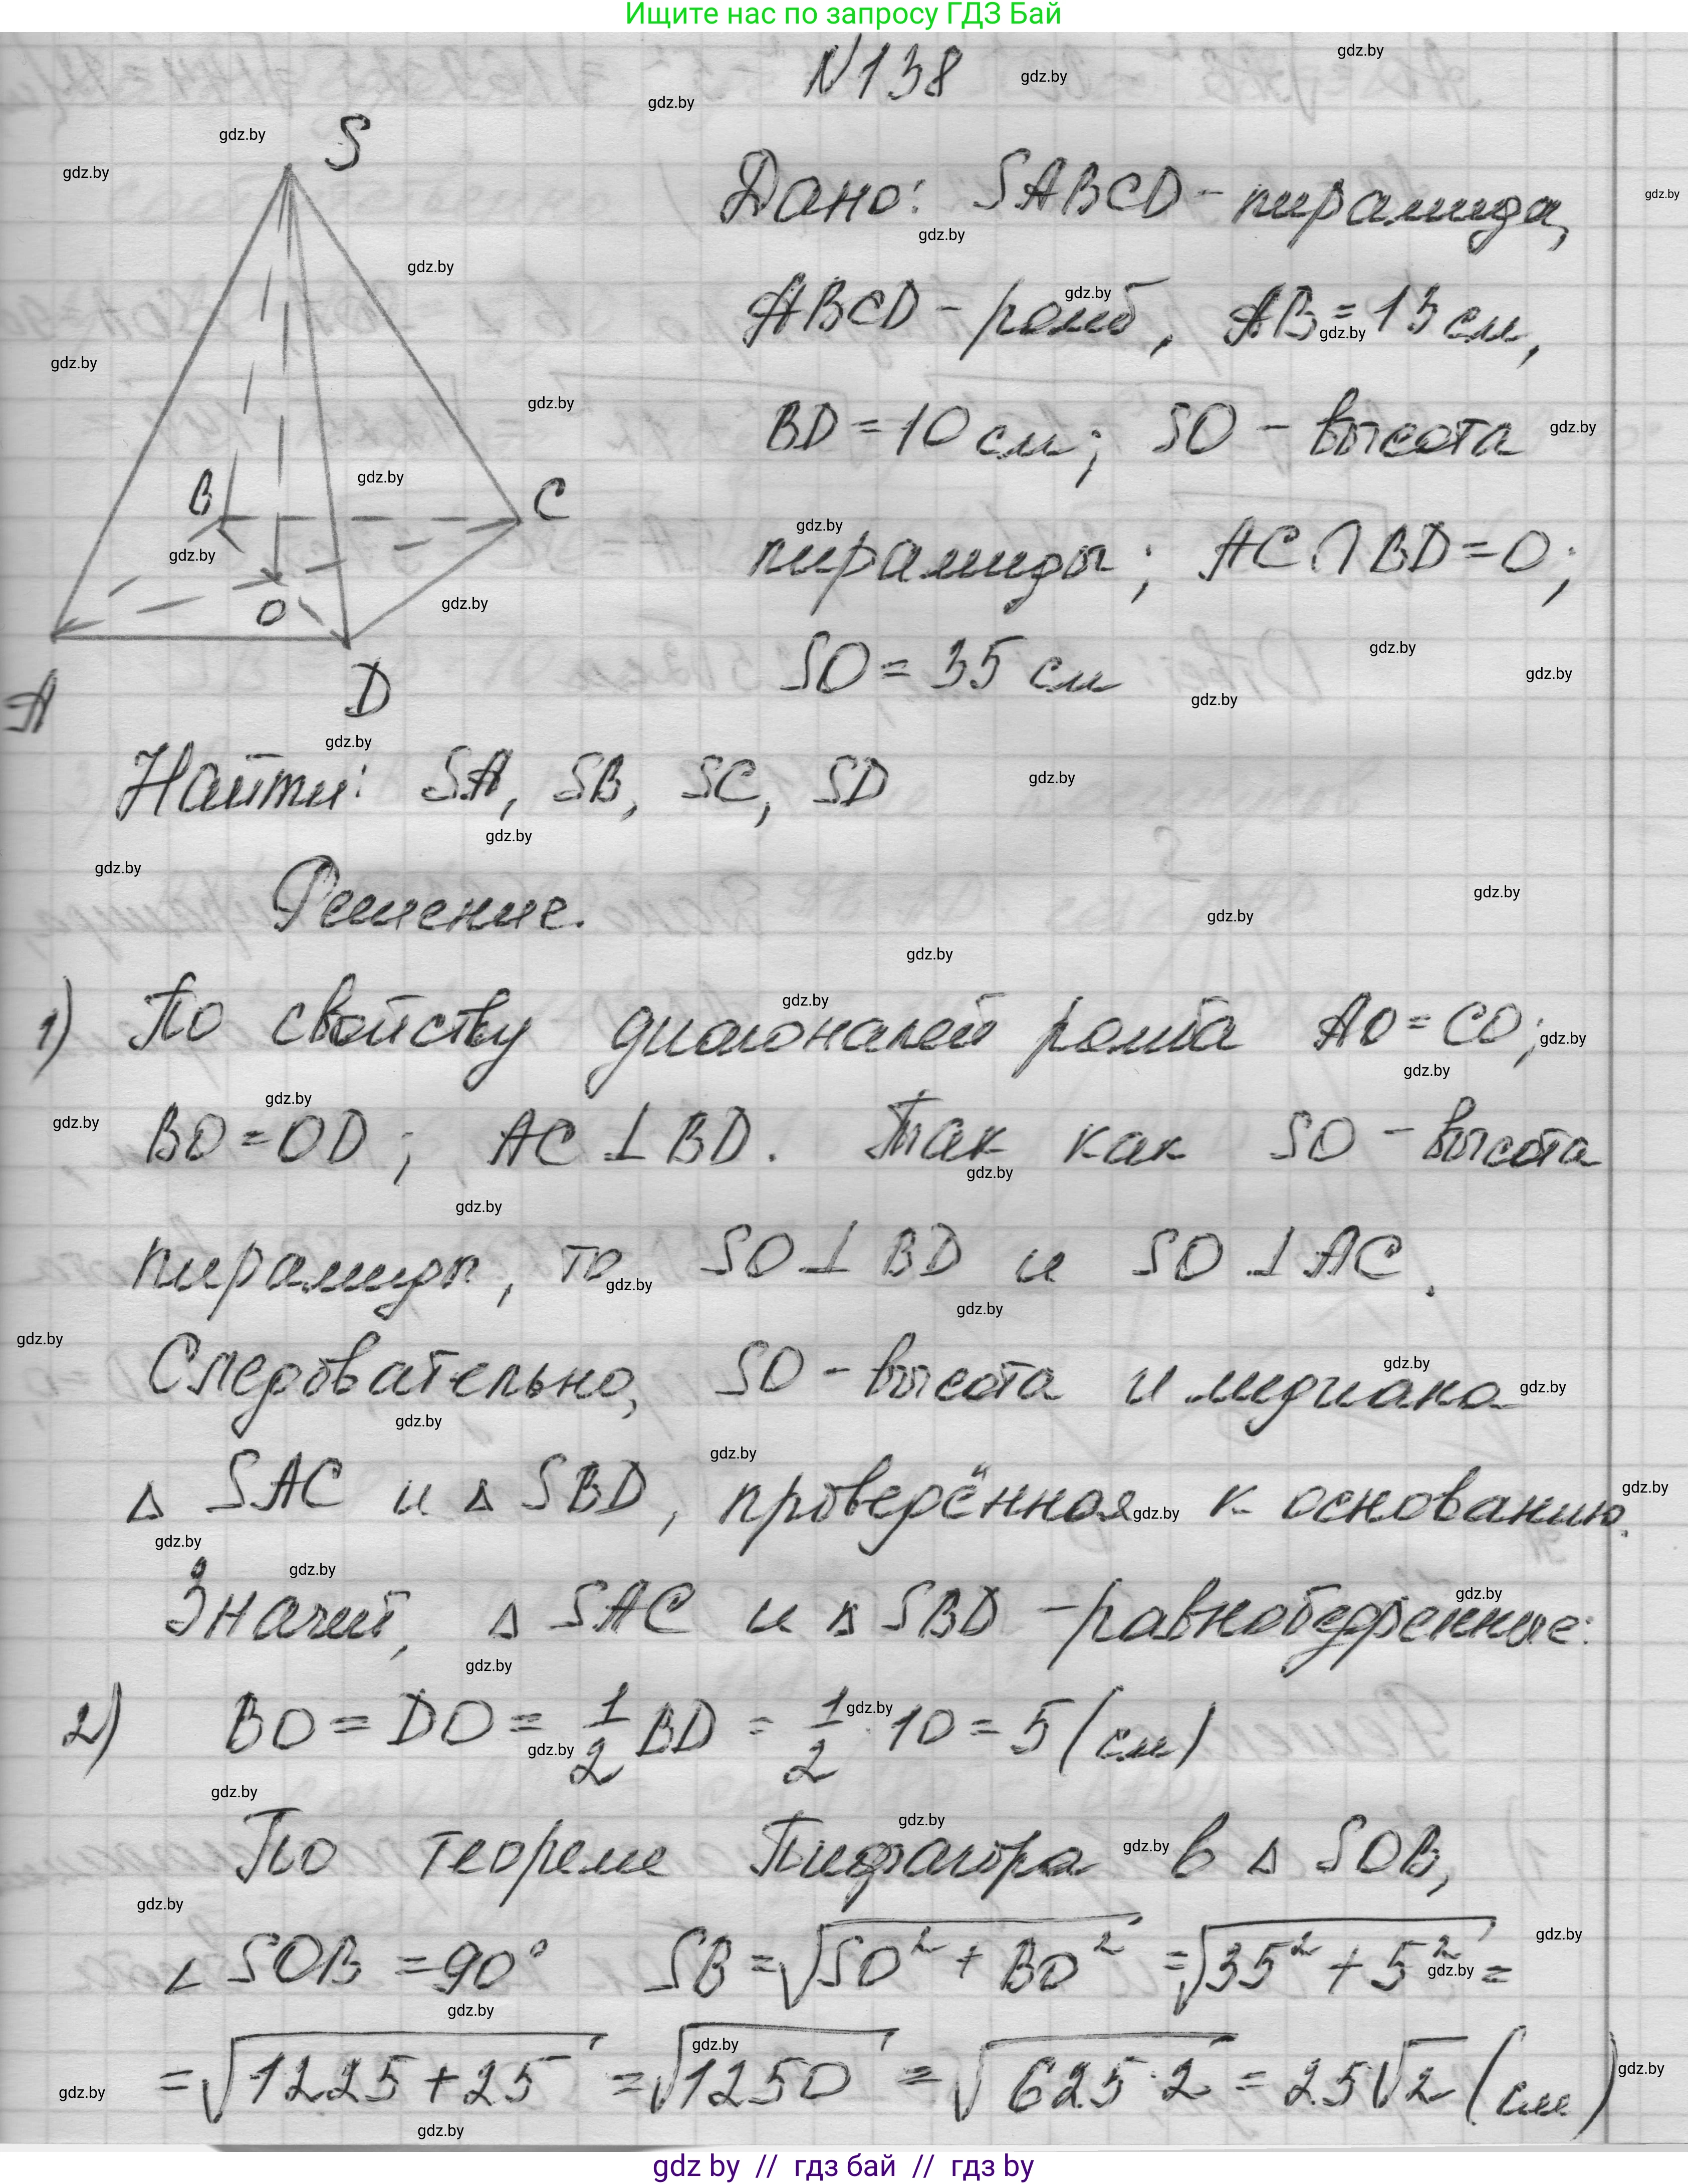 Ищите нас по запросу ГДЗ Бай
N138
S
Дано: SABCD - пирамида,
ABCD - ромб, AB = 13 см,
BD = 10 см; SO - высота
B
C
пирамиды; AC ∩ BD = O;
O
SO = 35 см
A
D
Найти: SA, SB, SC, SD
Решение.
1) По свойству диагоналей ромба AO = CO;
BO = OD; AC ⊥ BD. Так как SO - высота
пирамиды, то SO ⊥ BD и SO ⊥ AC.
Следовательно, SO - высота и медиана
△ SAC и △ SBD, проведённая к основанию.
Значит, △ SAC и △ SBD - равнобедренные:
2) BO = DO = 1/2 BD = 1/2 · 10 = 5 (см)
По теореме Пифагора в △ SOB,
∠ SOB = 90° SB = √(SO² + BO²) = √(35² + 5²) =
= √(1225 + 25) = √1250 = √(625 · 2) = 25√2 (см)
gdz by // гдз бай // гдз by